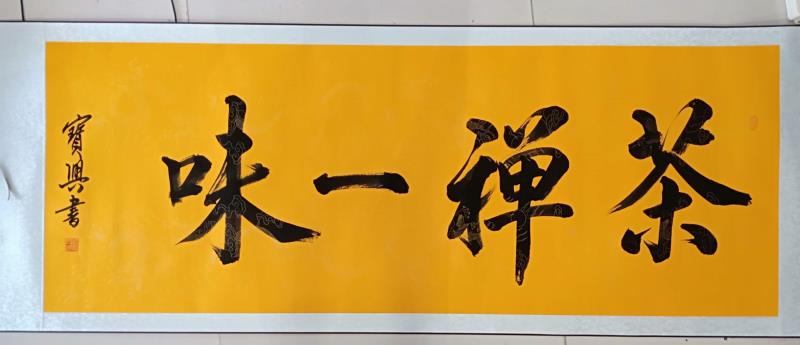 茶禅一味
寶興書